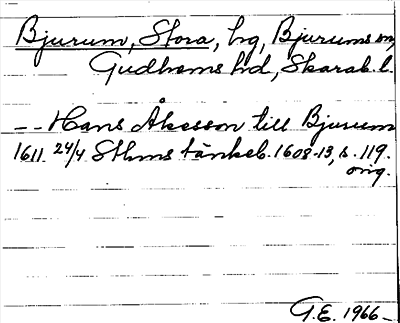 Bjurum, Stora, hg, Bjurums sn,
Gudhems hd, Skarab. l.
-- Hans Åkesson till Bjurum
1611 24/4 Sthms tänkeb. 1608-13, s. 119.
orig.
G.E. 1966-